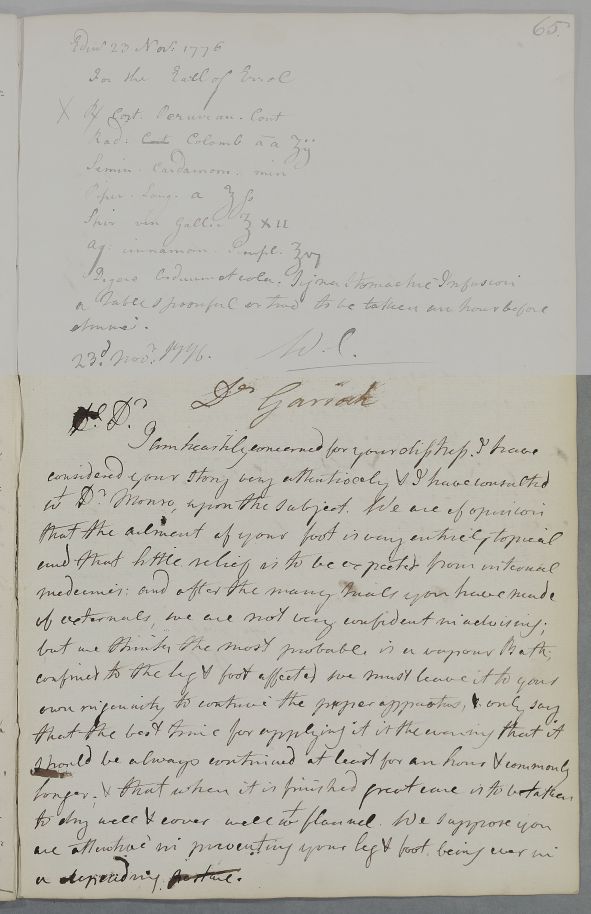 65.
Edinr 23 Novr. 1776
For the Earl of Errol
X ℞ Cort. Peruvian. Cont
Rad: Colomb āā ʒij
Semin. Cardamom. min
Piper. Long. a ʒſs
Spir vin Gallic ℥ XII
Aq: cinnamon. Simpl. ℥vj
Digere et cola. Signa Stomachic Infusion
a Table spoonful or two to be taken an hour before
dinner.
23d. Novr. 1776. W. C.
Dr Garioch
Dr. Dr.
I am heartily concerned for your distress. I have
considered your story very attentively & I have consulted
wt Dr. Monro, upon the subject. We are of opinion
that the ailment of your foot is very entirely topical
and that little relief is to be expected from internal
medicines: and after the many trials you have made
of externals, we are not very confident in advising;
but we think the most probable is a vapour Bath,
confined to the leg & foot affected we must leave it to your
own ingenuity to contrive the proper apparatus, & only say
that the best time for applying it is the evening that it
should be always continued at least for an hour & commonly
longer; & that when it is finished great care is to be taken
to dry well & cover well wt flannel. We suppose you
are attentive in preventing your leg & foot being ever in
a depending posture.